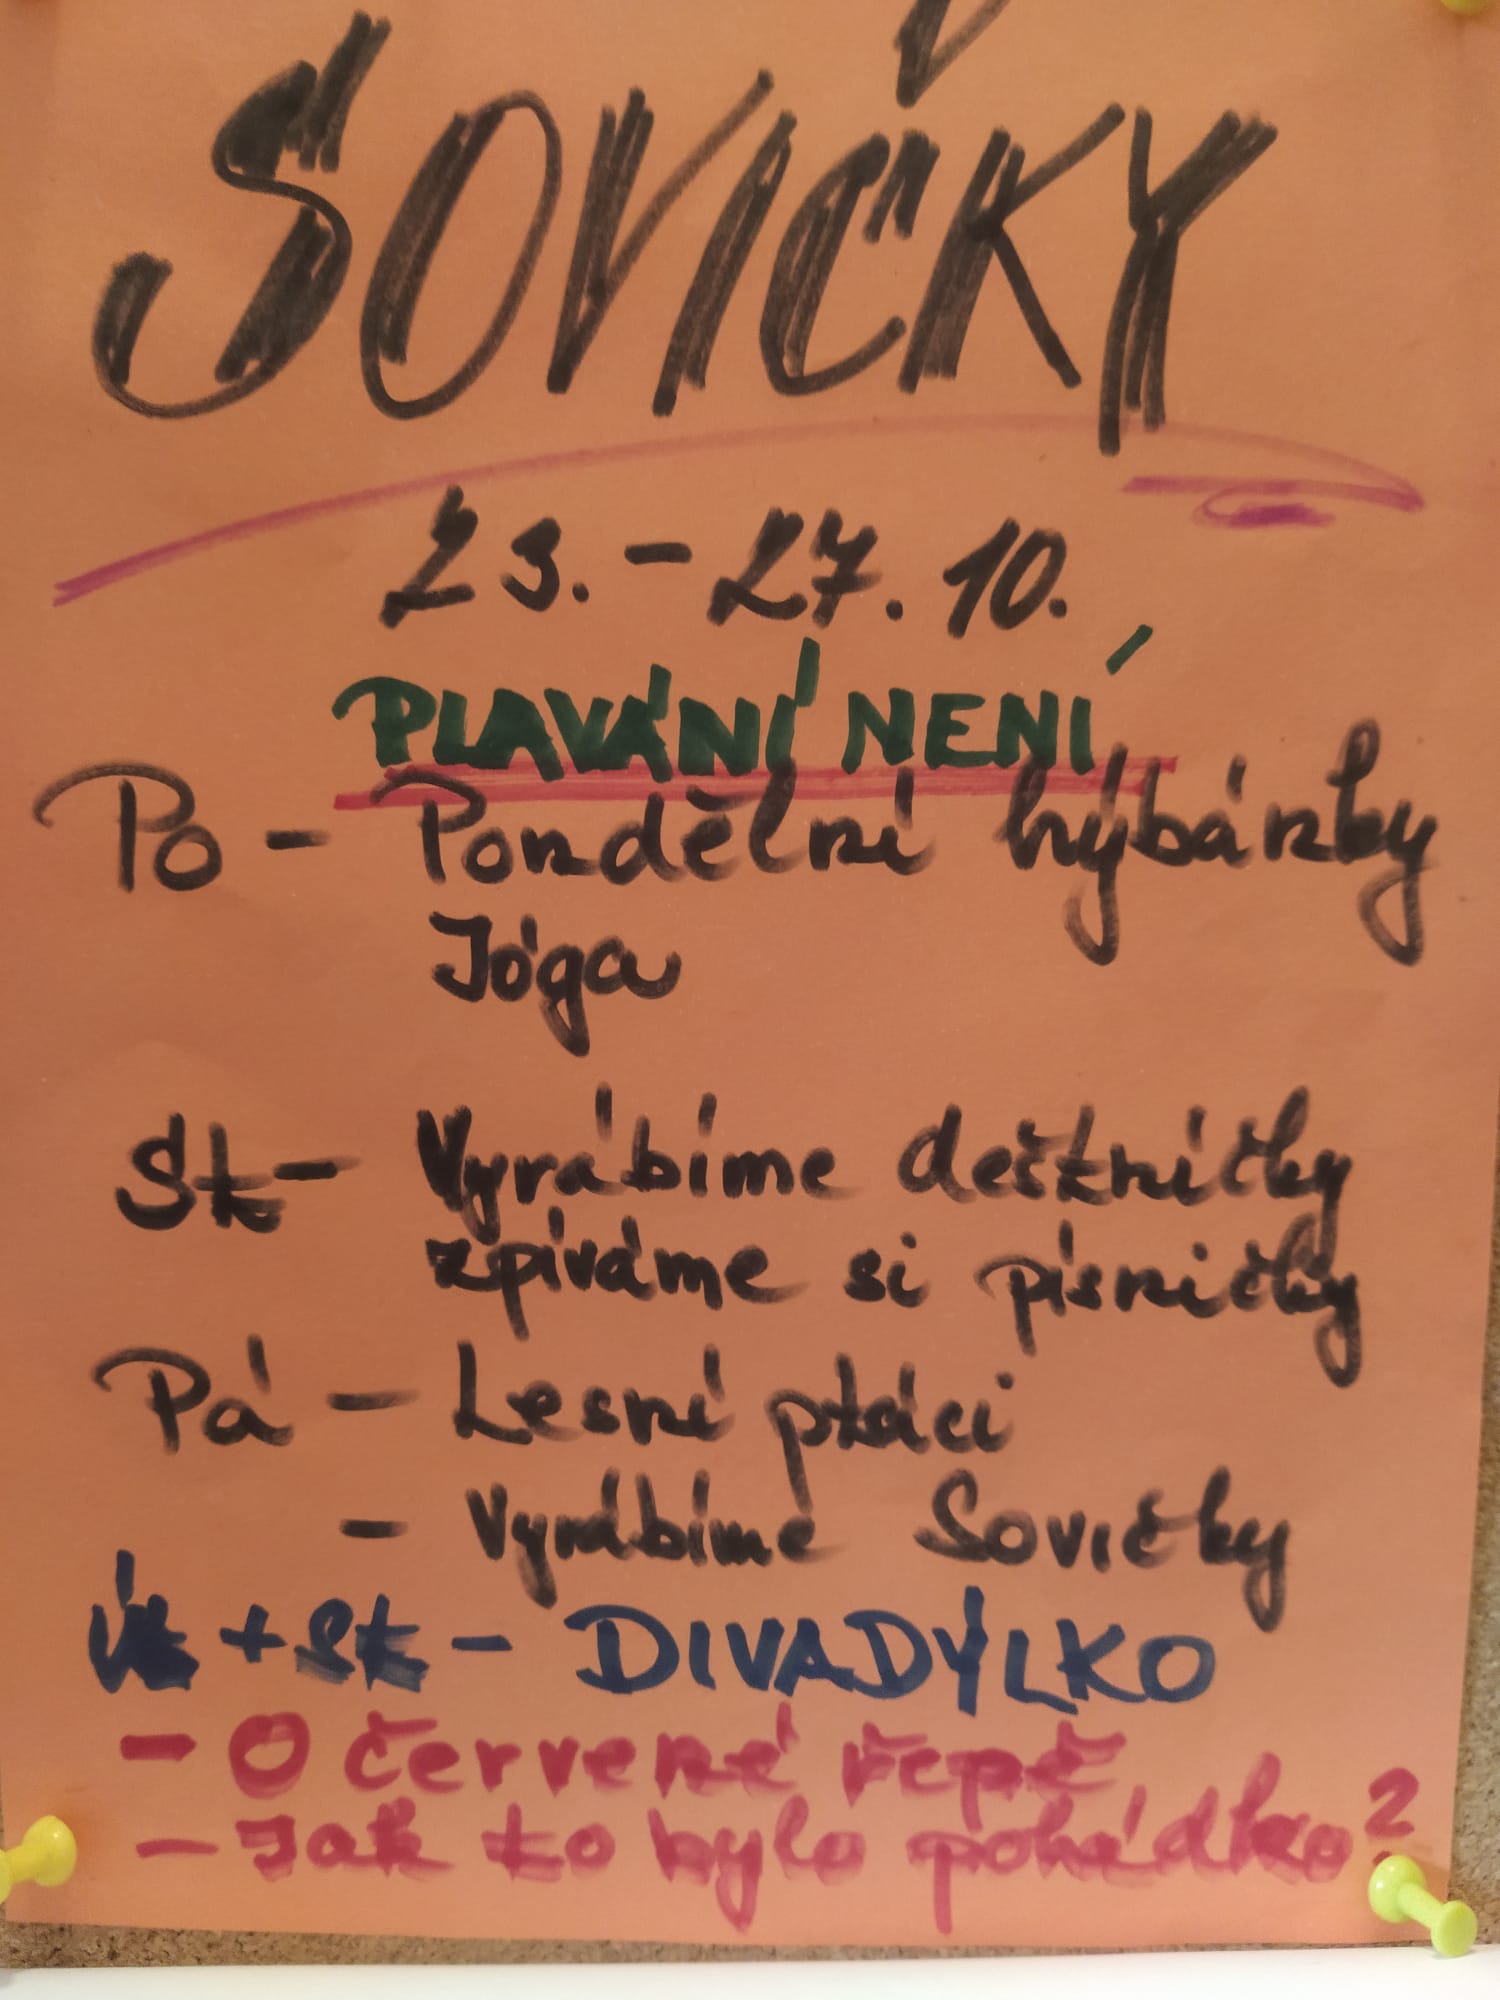 SOVIČKY
23. - 27. 10.
PLAVÁNÍ NENÍ
Po - Pondělní hýbánky
Jóga
St - Vyrábíme deštníčky
zpíváme si písničky
Pá - Lesní ptáci
- Vyrábíme Sovičky
Út + St - DIVADÝLKO
- O červené řepě
- Jak to bylo pohádko?